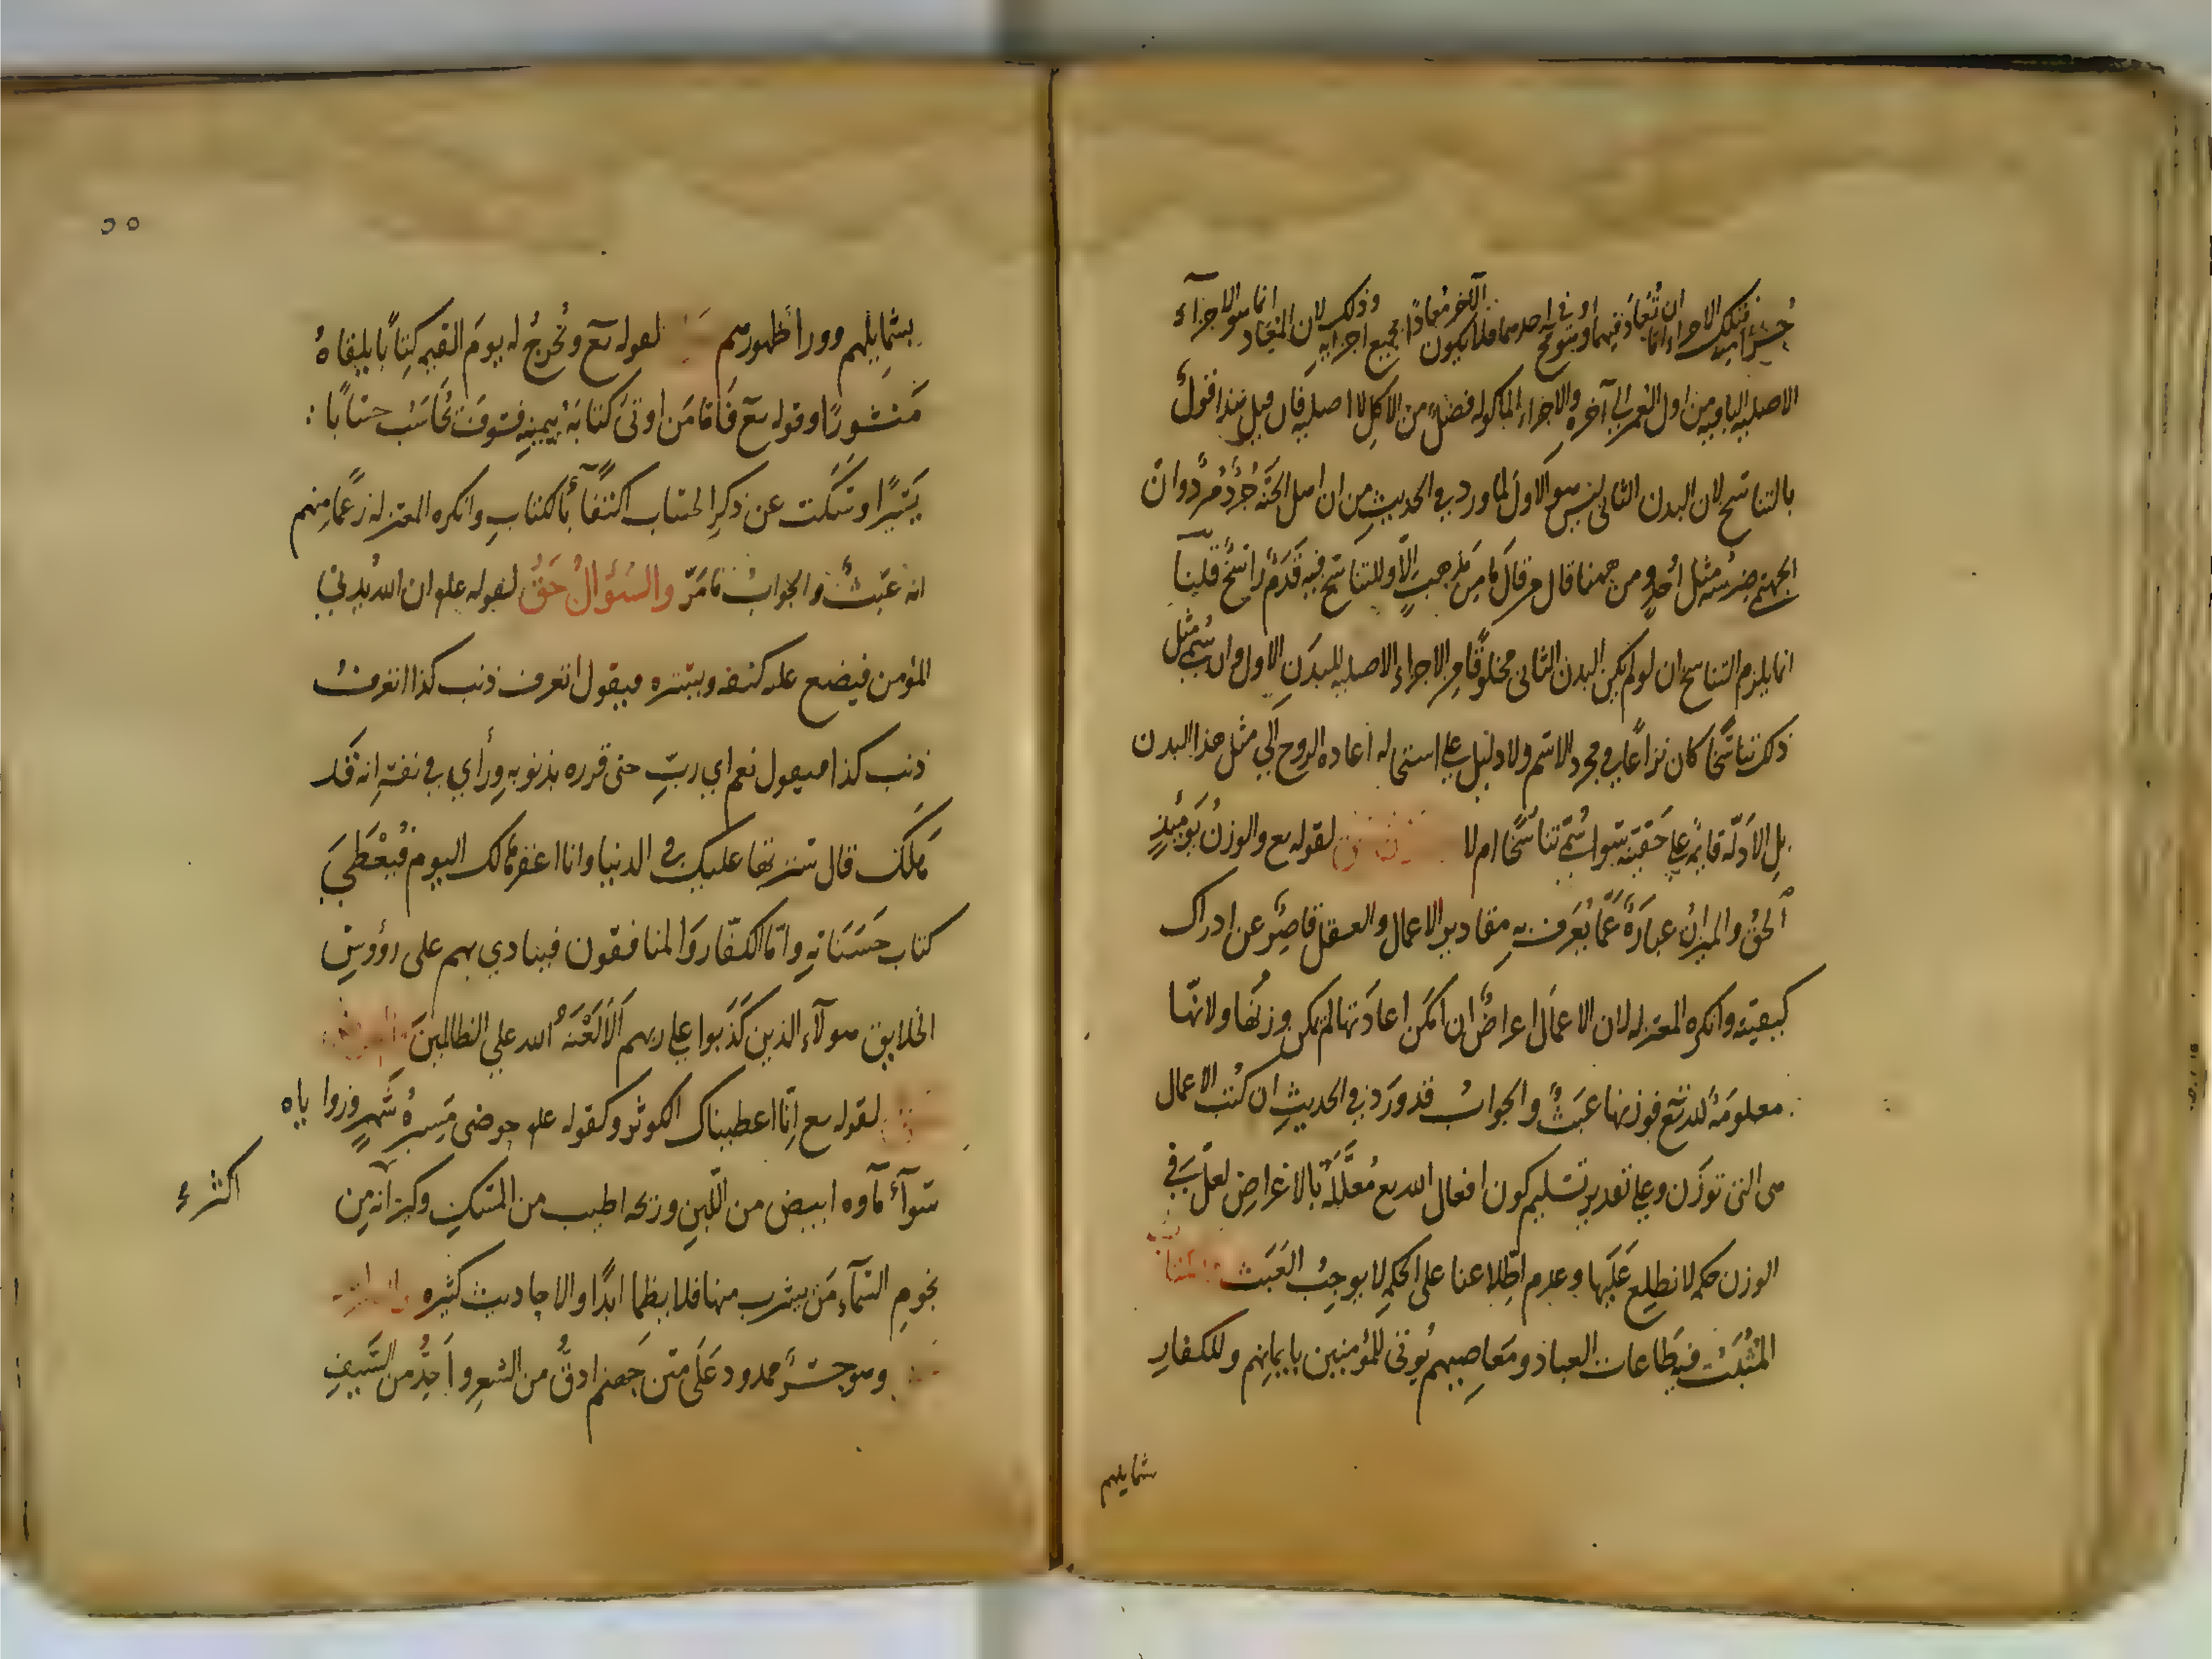 جزأ منه فتلك الاجزاء اما ان تعاد فيهما وهو مح او في احدهما فلا يكون الآخر معادا بجميع اجزايه وذلك لان المعاد انما هو الاجزاء
الاصلية الباقية من اول العمر الى آخره والاجزاء الماكولة فضلة من الاكل لا اصلية فان قيل هذا قول
بالتناسخ لان البدن الثاني ليس هو الاول لما ورد في الحديث من ان اهل الجنة جُرْدٌ مُرْدٌ وان
الجهنمي ضرسه مثل اُحد ومن ههنا قال من قال ما من مذهب الا وللتناسخ فيه قدم راسخ قلنا
انما يلزم التناسخ ان لو لم يكن البدن الثاني مخلوقا من الاجزاء الاصلية للبدن الاول وان سمي مثل
ذلك تناسخا كان نزاعا في مجرد الاسم ولا دليل على استحالة اعادة الروح الى مثل هذا البدن
بل الادلة قايمة على حقيته سواء سُمّي تناسخا ام لا لقوله تع والوزن يومئذ
الحق والميزان عبارة عما يعرف به مقادير الاعمال والعقل قاصر عن ادراك
كيفيته وانكره المعتزلة لان الاعمال اعراض ان امكن اعادتها لم يمكن وزنها ولانها
معلومة لله تع فوزنها عبث والجواب قد ورد في الحديث ان كتب الاعمال
هى التى توزن وعلى تقدير تسليم كون افعال الله تع معللة بالاغراض لعل في
الوزن حكمة لا نطلع عليها وعدم اطلاعنا على الحكمة لا يوجب العبث
المثبت فيه طاعات العباد ومعاصيهم يُوتى للمؤمنين بايمانهم وللكفار
شمايلهم
بشمايلهم وورا ظهورهم لقوله تع ونخرج له يوم القيمة كتابا يلقاه
منشورا وقوله تع فاما من اوتى كتابه بيمينه فسوف يحاسب حسابا
يسيرا وسكت عن ذكر الحساب اكتفاءً بالكتاب وانكره المعتزلة زعما منهم
انه عبث والجواب ما مرّ والسؤال حق لقوله علم ان الله يدني
المؤمن فيضع عليه كنفه ويستره فيقول اتعرف ذنب كذا اتعرف
ذنب كذا فيقول نعم اي ربّ حتى قرره بذنوبه ورأي في نفسه انه قد
هلك قال سترتها عليك في الدنيا وانا اغفرها لك اليوم فيُعْطَي
كتاب حسناته واما الكفار والمنافقون فينادي بهم على رؤوس
الخلايق هولاء الذين كذبوا على ربهم الا لعنة الله على الظالمين
لقوله تع انا اعطيناك الكوثر وكقوله علم حوضى مسيرة شهر وزواياه
سوآء ماوه ابيض من اللبن وريحه اطيب من المسك وكيزانه من
اكثر
نجوم السماء من يشرب منها فلا يظما ابدا والاحاديث كثيرة
وهو جسر ممدود على متن جهنم ادق من الشعر واحد من السيف